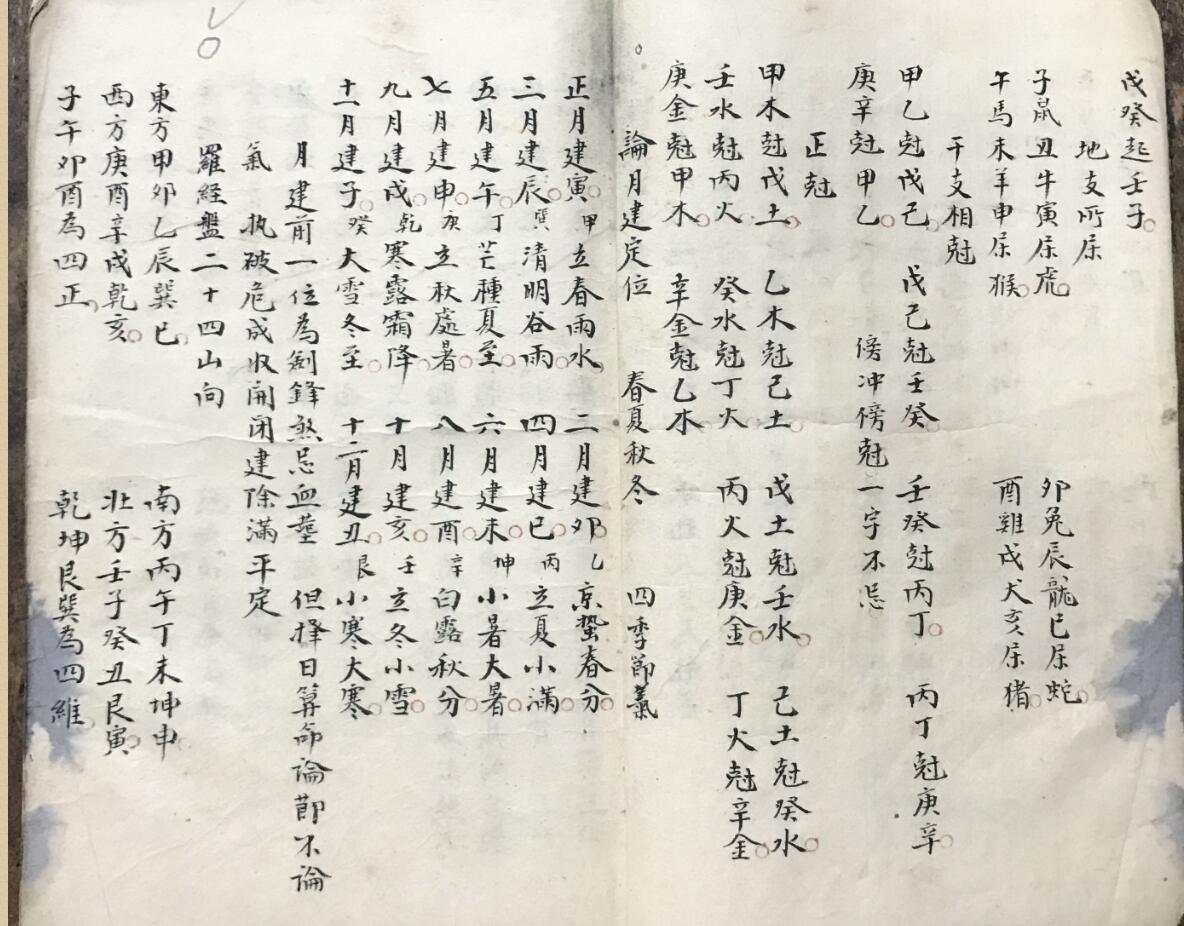 戊癸起壬子
地支所屬
子鼠丑牛寅屬虎 卯兔辰龍巳屬蛇
午馬未羊申屬猴 酉雞戌犬亥屬猪
干支相尅
甲乙尅戊己 戊己尅壬癸 壬癸尅丙丁 丙丁尅庚辛
庚辛尅甲乙 傍冲傍尅一字不忌
正尅
甲木尅戊土 乙木尅己土 戊土尅壬水 己土尅癸水
壬水尅丙火 癸水尅丁火 丙火尅庚金 丁火尅辛金
庚金尅甲木 辛金尅乙木
論月建定位 春夏秋冬 四季節氣
正月建寅甲立春雨水 二月建卯乙京蟄春分
三月建辰巽清明谷雨 四月建巳丙立夏小滿
五月建午丁芒種夏至 六月建未坤小暑大暑
七月建申庚立秋處暑 八月建酉辛白露秋分
九月建戌乾寒露霜降 十月建亥壬立冬小雪
十一月建子癸大雪冬至 十二月建丑艮小寒大寒
月建前一位為劍鋒煞忌血塟 但擇日算命論節不論
氣 执破危成収開闭建除滿平定
羅經盤二十四山向
東方甲卯乙辰巽巳 南方丙午丁未坤申
西方庚酉辛戌乾亥 北方壬子癸丑艮寅
子午卯酉為四正 乾坤艮巽為四維